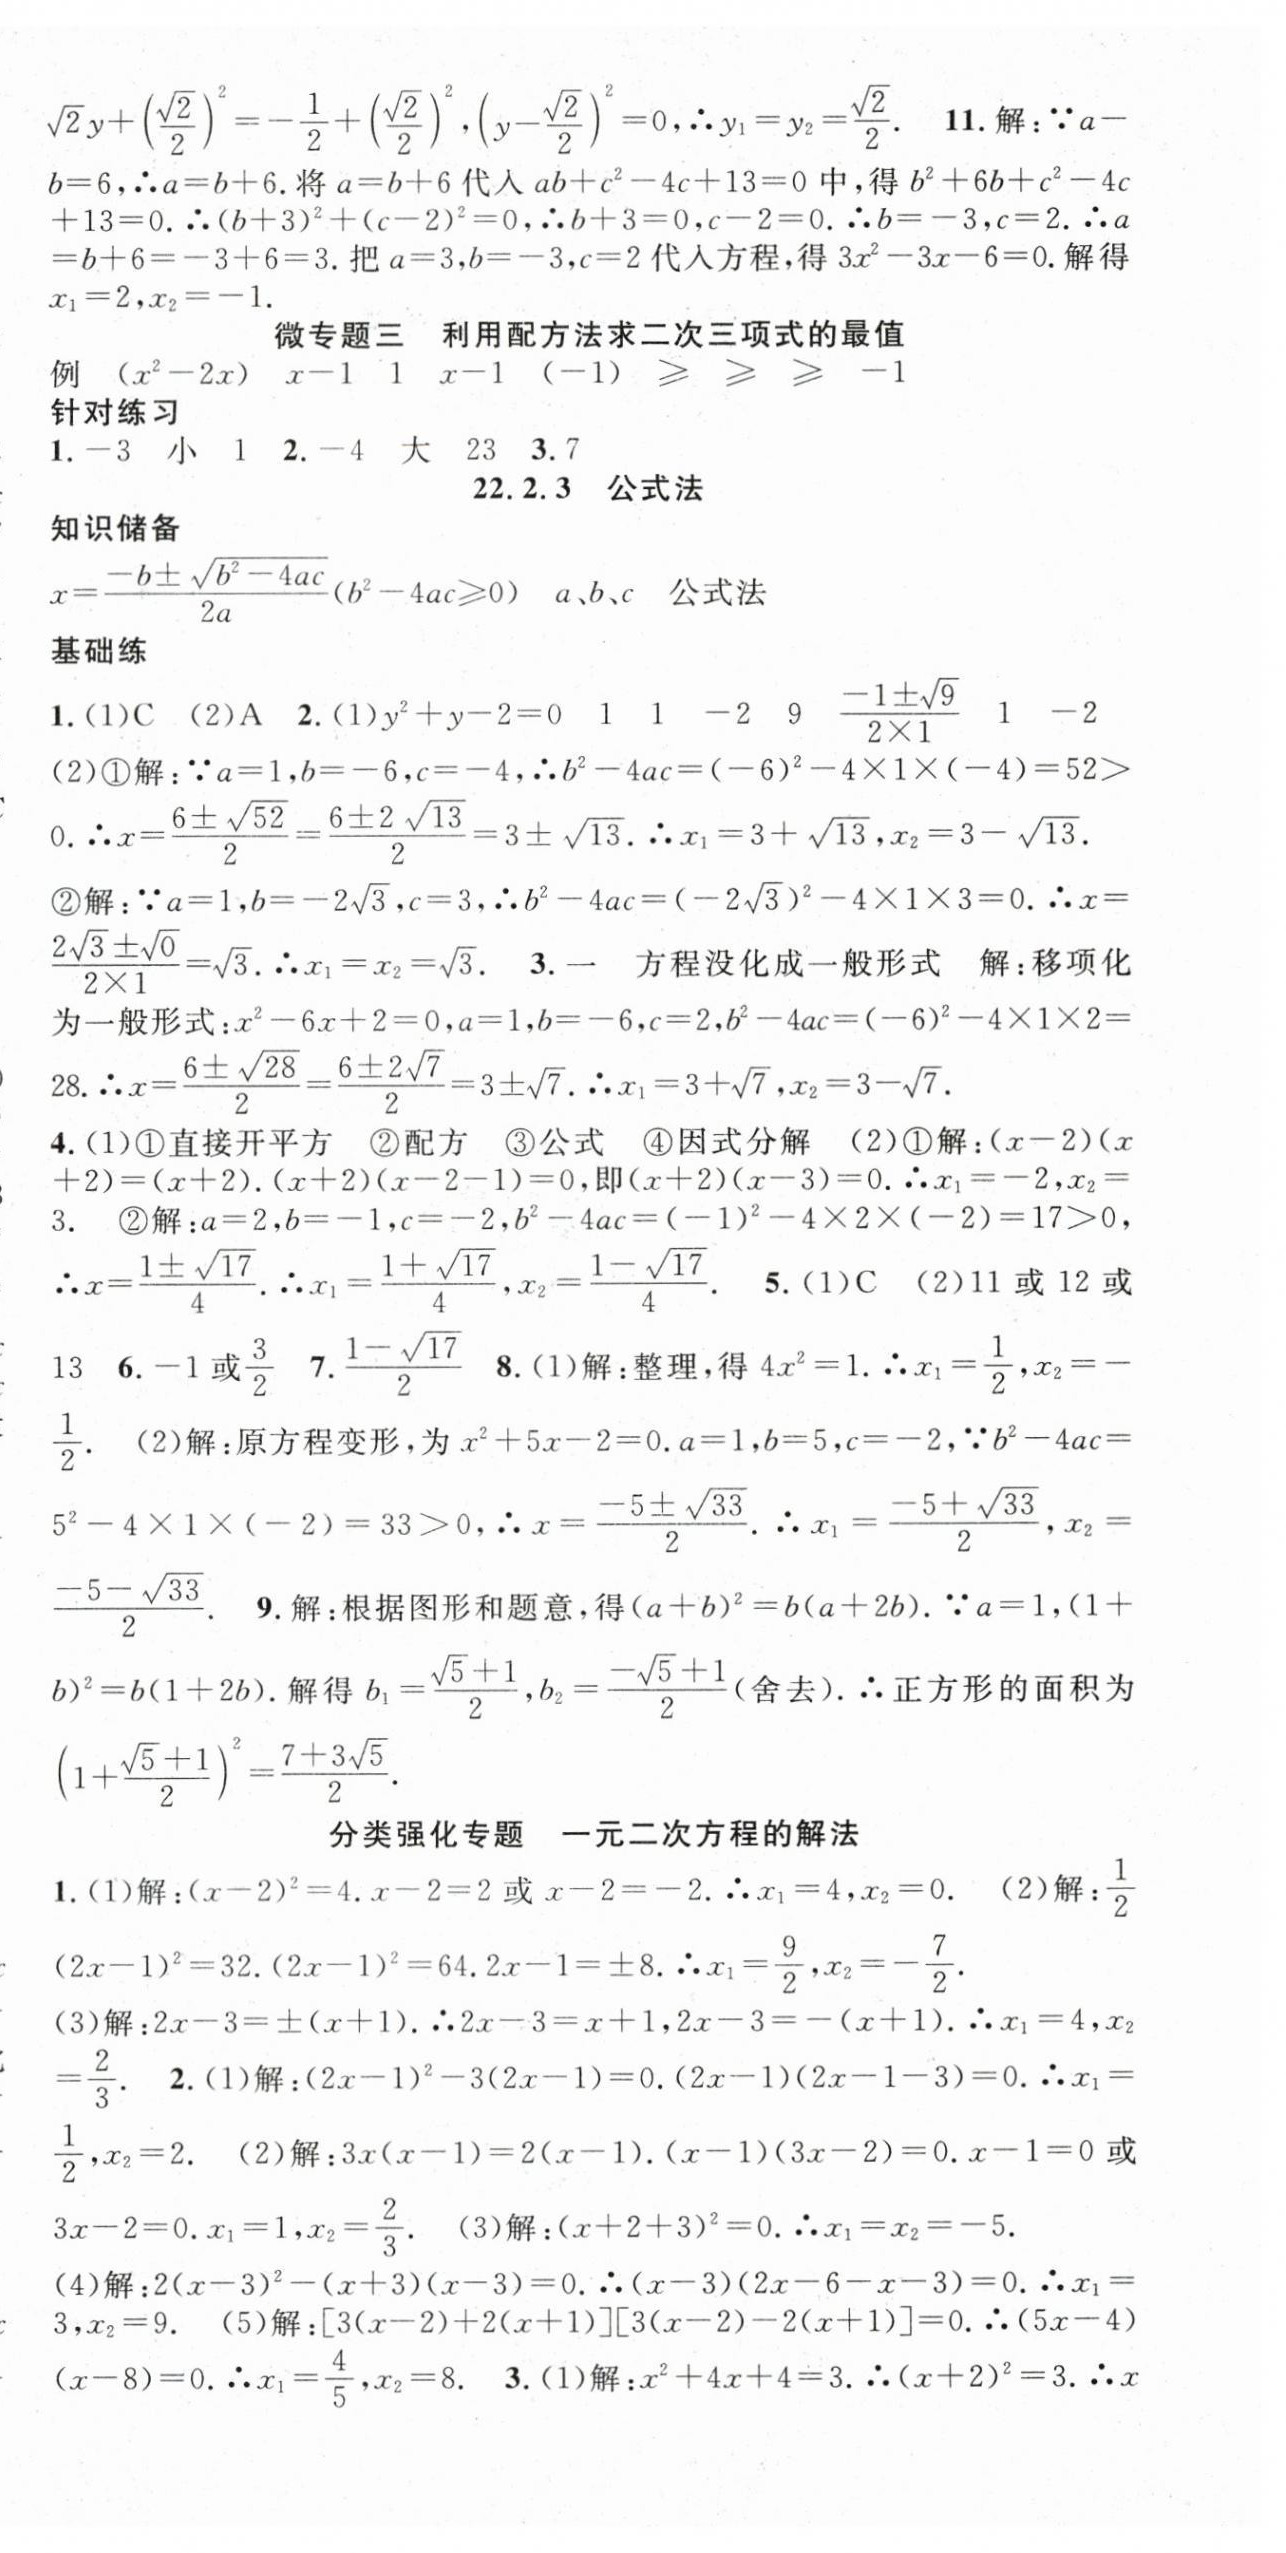 √2y+(√2/2)²=-1/2+(√2/2)²,(y-√2/2)²=0,∴y₁=y₂=√2/2. 11.解:∵a-
b=6,∴a=b+6.将 a=b+6 代入 ab+c²-4c+13=0 中,得 b²+6b+c²-4c
+13=0.∴(b+3)²+(c-2)²=0,∴b+3=0,c-2=0.∴b=-3,c=2.∴a
=b+6=-3+6=3.把 a=3,b=-3,c=2 代入方程,得 3x²-3x-6=0.解得
x₁=2,x₂=-1.
微专题三 利用配方法求二次三项式的最值
例 (x²-2x) x-1 1 x-1 (-1) ⩾ ⩾ ⩾ -1
针对练习
1.-3 小 1 2.-4 大 23 3.7
22.2.3 公式法
知识储备
x=(-b±√(b²-4ac))/(2a)(b²-4ac⩾0) a、b、c 公式法
基础练
1.(1)C (2)A 2.(1)y²+y-2=0 1 1 -2 9 (-1±√9)/(2×1) 1 -2
(2)①解:∵a=1,b=-6,c=-4,∴b²-4ac=(-6)²-4×1×(-4)=52>
0.∴x=(6±√52)/2=(6±2√13)/2=3±√13.∴x₁=3+√13,x₂=3-√13.
②解:∵a=1,b=-2√3,c=3,∴b²-4ac=(-2√3)²-4×1×3=0.∴x=
(2√3±√0)/(2×1)=√3.∴x₁=x₂=√3. 3.一 方程没化成一般形式 解:移项化
为一般形式:x²-6x+2=0,a=1,b=-6,c=2,b²-4ac=(-6)²-4×1×2=
28.∴x=(6±√28)/2=(6±2√7)/2=3±√7.∴x₁=3+√7,x₂=3-√7.
4.(1)①直接开平方 ②配方 ③公式 ④因式分解 (2)①解:(x-2)(x
+2)=(x+2).(x+2)(x-2-1)=0,即(x+2)(x-3)=0.∴x₁=-2,x₂=
3. ②解:a=2,b=-1,c=-2,b²-4ac=(-1)²-4×2×(-2)=17>0,
∴x=(1±√17)/4.∴x₁=(1+√17)/4,x₂=(1-√17)/4. 5.(1)C (2)11 或 12 或
13 6.-1 或 3/2 7.(1-√17)/2 8.(1)解:整理,得 4x²=1.∴x₁=1/2,x₂=-
1/2. (2)解:原方程变形,为 x²+5x-2=0.a=1,b=5,c=-2,∵b²-4ac=
5²-4×1×(-2)=33>0,∴x=(-5±√33)/2.∴x₁=(-5+√33)/2,x₂=
(-5-√33)/2. 9.解:根据图形和题意,得(a+b)²=b(a+2b).∵a=1,(1+
b)²=b(1+2b).解得 b₁=(√5+1)/2,b₂=(-√5+1)/2(舍去).∴正方形的面积为
(1+(√5+1)/2)²=(7+3√5)/2.
分类强化专题 一元二次方程的解法
1.(1)解:(x-2)²=4.x-2=2 或 x-2=-2.∴x₁=4,x₂=0. (2)解:1/2
(2x-1)²=32.(2x-1)²=64.2x-1=±8.∴x₁=9/2,x₂=-7/2.
(3)解:2x-3=±(x+1).∴2x-3=x+1,2x-3=-(x+1).∴x₁=4,x₂
=2/3. 2.(1)解:(2x-1)²-3(2x-1)=0.(2x-1)(2x-1-3)=0.∴x₁=
1/2,x₂=2. (2)解:3x(x-1)=2(x-1).(x-1)(3x-2)=0.x-1=0 或
3x-2=0.x₁=1,x₂=2/3. (3)解:(x+2+3)²=0.∴x₁=x₂=-5.
(4)解:2(x-3)²-(x+3)(x-3)=0.∴(x-3)(2x-6-x-3)=0.∴x₁=
3,x₂=9. (5)解:[3(x-2)+2(x+1)][3(x-2)-2(x+1)]=0.∴(5x-4)
(x-8)=0.∴x₁=4/5,x₂=8. 3.(1)解:x²+4x+4=3.∴(x+2)²=3.∴x